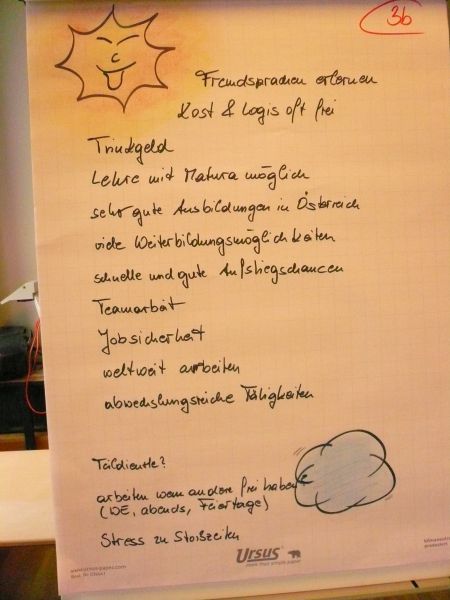 3b
Fremdsprachen erlernen
Kost & Logis oft frei
Trinkgeld
Lehre mit Matura möglich
sehr gute Ausbildungen in Österreich
viele Weiterbildungsmöglichkeiten
schnelle und gute Aufstiegschancen
Teamarbeit
Jobsicherheit
weltweit arbeiten
abwechslungsreiche Tätigkeiten
Teildienste?
arbeiten wenn andere frei haben
(WE, abends, Feiertage)
Stress zu Stoßzeiten
Ursus
more than simple paper
www.ursus-paper.com